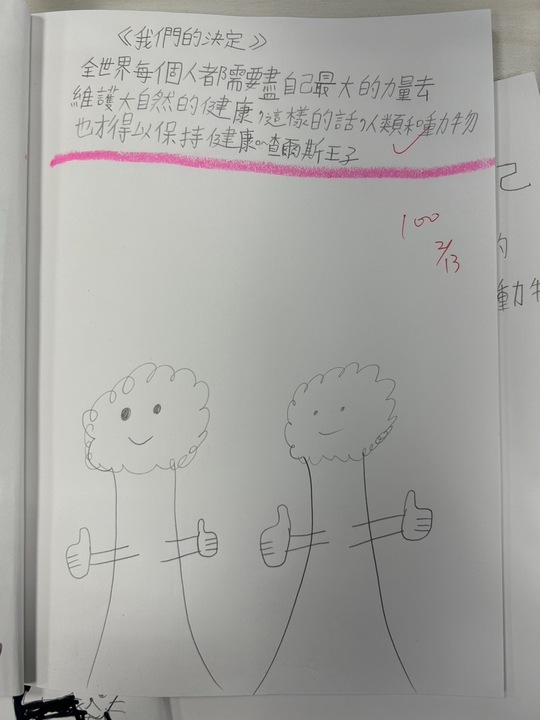 《我們的決定》
全世界每個人都需要盡自己最大的力量去
維護大自然的健康,這樣的話,人類和動物
也才得以保持健康~查爾斯王子
100
2/13
己
的
動物